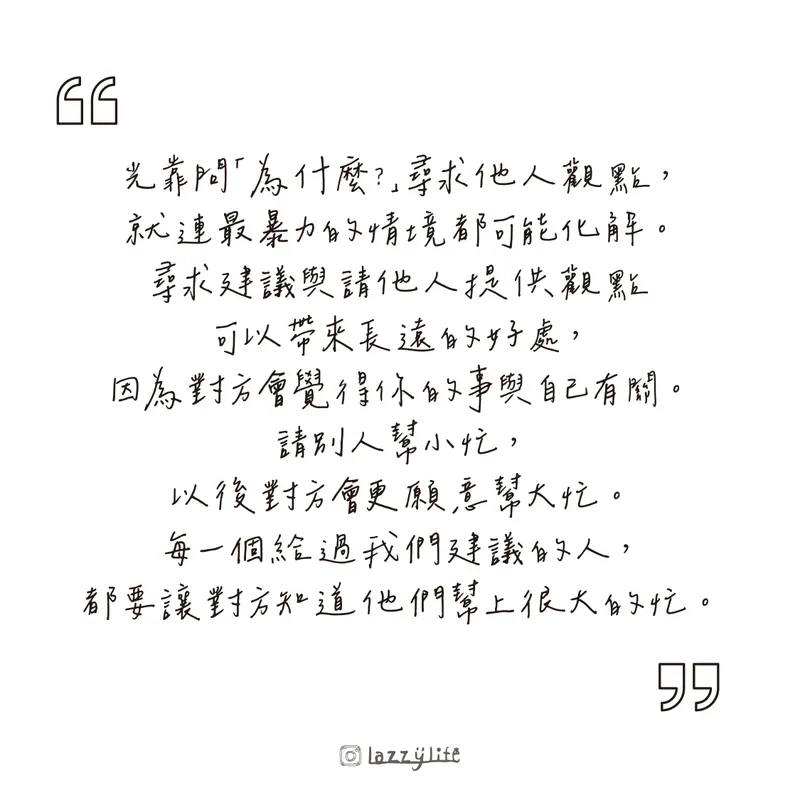 光靠問「為什麼?」尋求他人觀點，
就連最暴力的情境都可能化解。
尋求建議與請他人提供觀點
可以帶來長遠的好處，
因為對方會覺得你的事與自己有關。
請別人幫小忙，
以後對方會更願意幫大忙。
每一個給過我們建議的人，
都要讓對方知道他們幫上很大的忙。
lazzylife